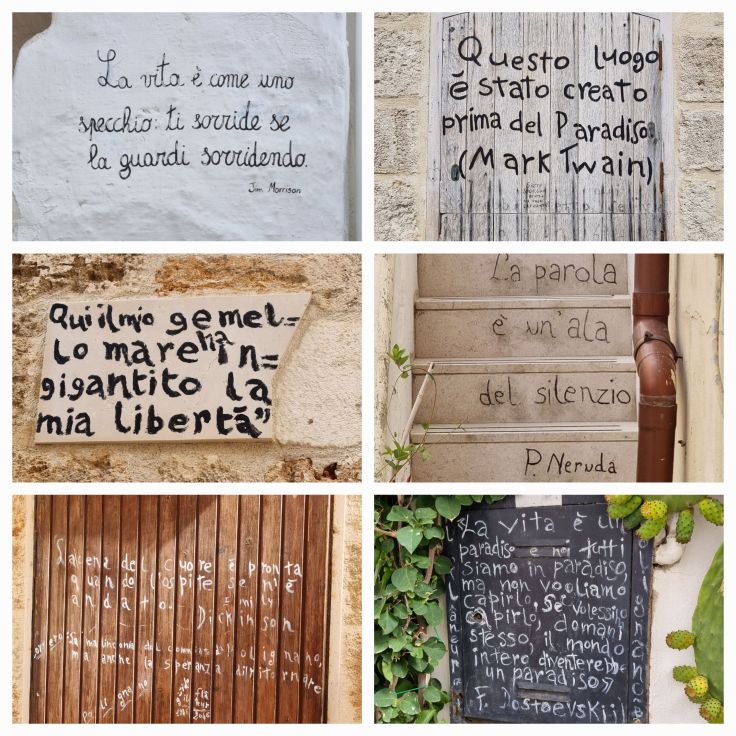 La vita è come uno
specchio: ti sorride se
la guardi sorridendo.
Jim Morrison
Questo luogo
è stato creato
prima del Paradiso
(Mark Twain)
Qui il mio gemel=
lo mare ha in=
gigantito la
mia libertà"
La parola
è un'ala
del silenzio
P. Neruda
La cena del cuore è pronta
quando l'ospite se ni è
andato. Emily
Dickinson
ma anche la speranza di ritornare
La vita è un
paradiso e noi tutti
siamo in paradiso,
ma non vogliamo
capirlo, se volessimo
capirlo, domani
stesso il mondo
intero diventerebbe
un paradiso"
F. Dostoevskij